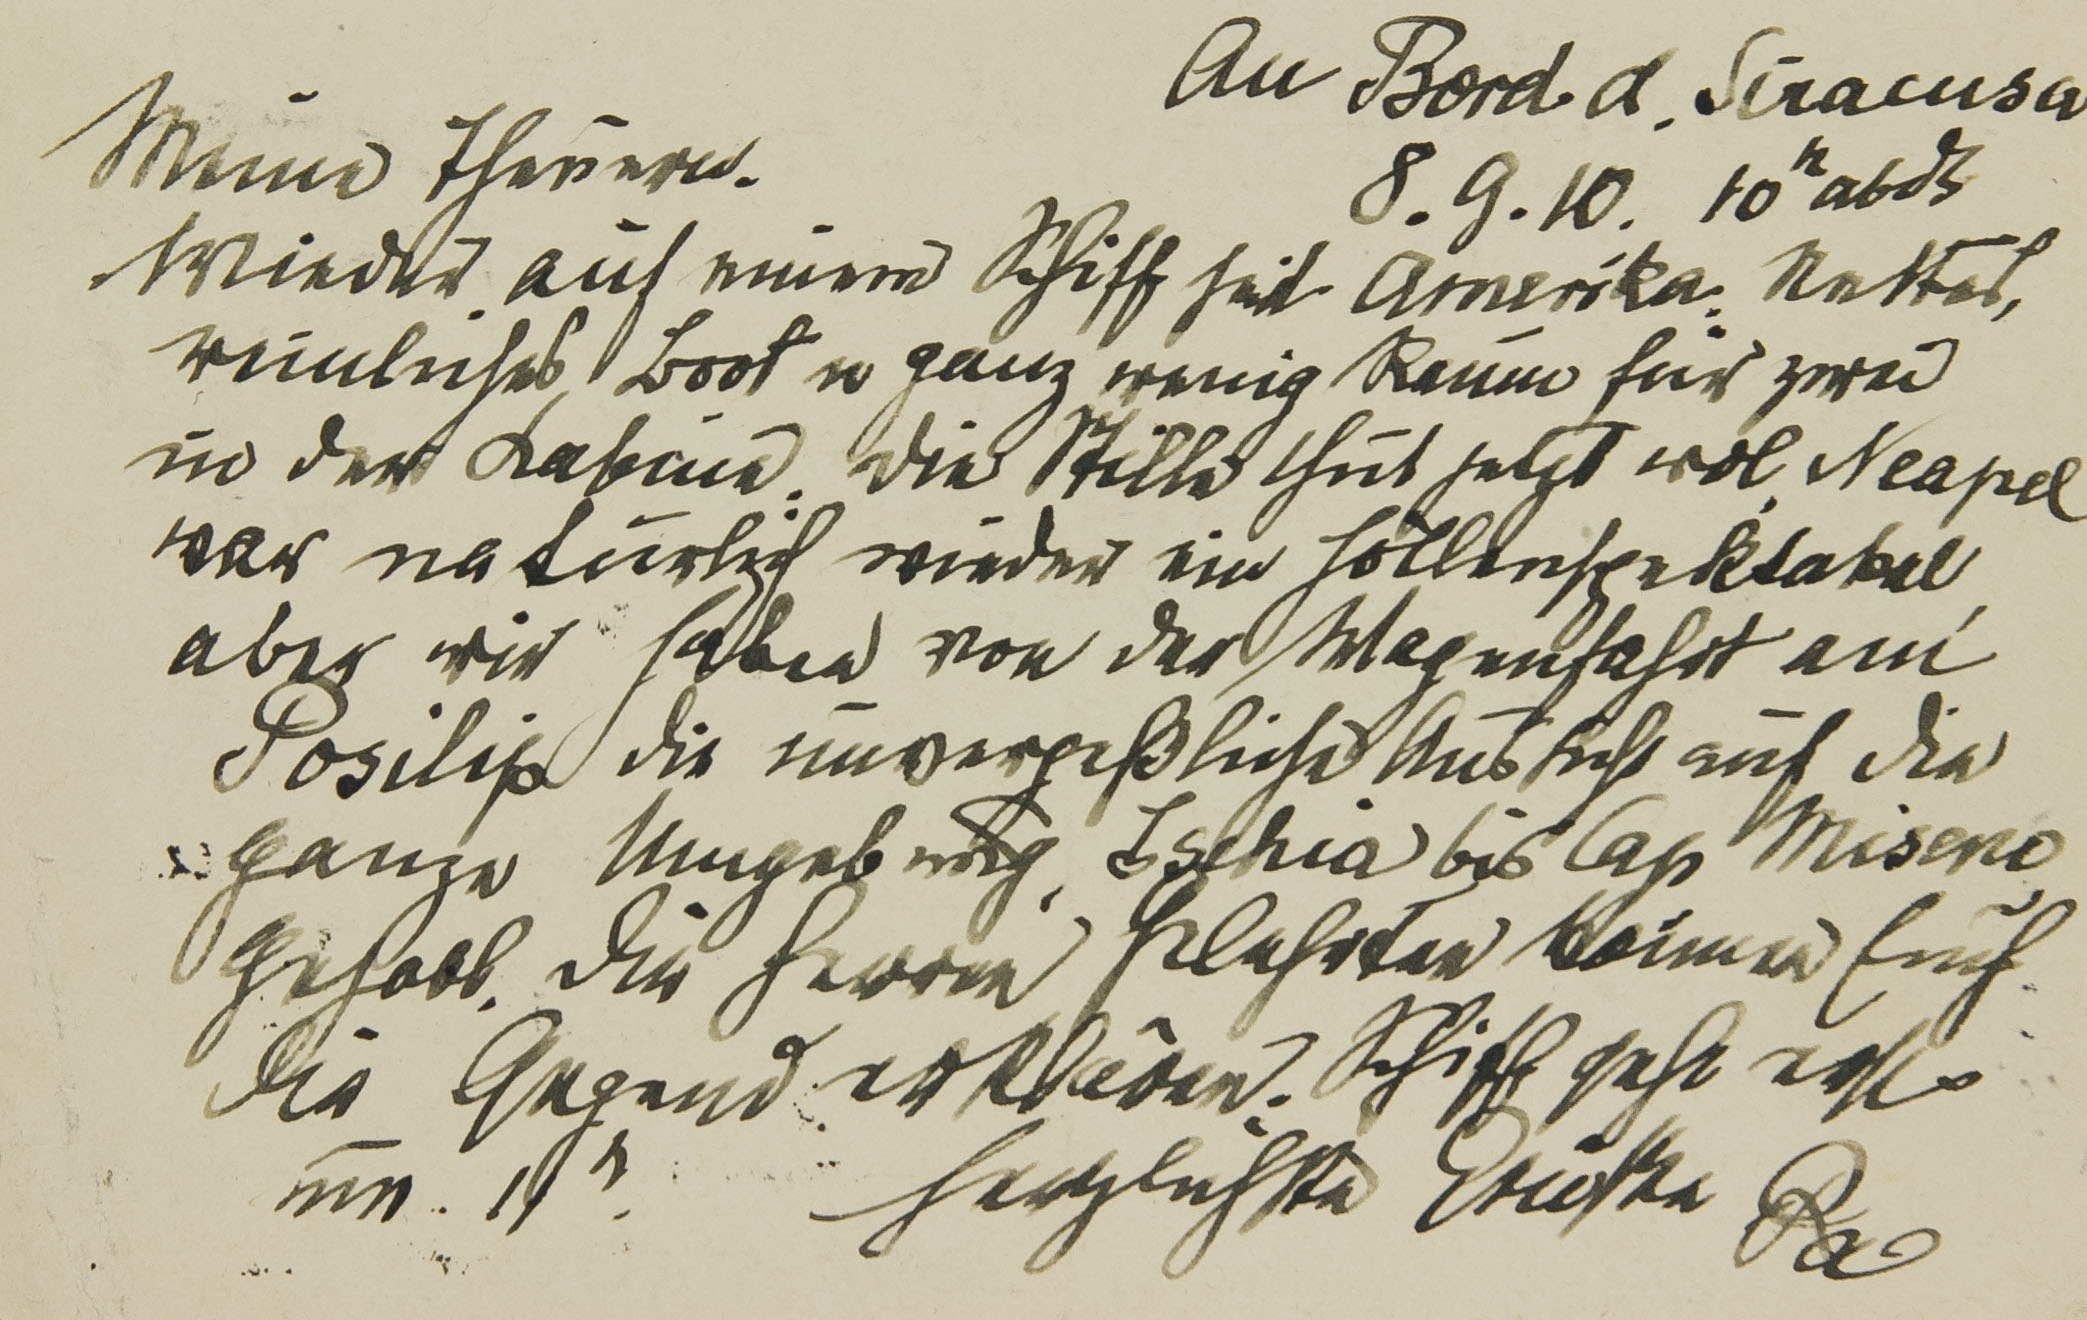 An Bord d. Siracusa
8. 9. 10. 10h abds
Meine Theuern.
Wieder auf einem Schiff seit Amerika. Nettes,
reinliches Boot u ganz wenig Raum für zwei
in der Kabine. Die Stille thut jetzt wol, Neapel
war natürlich wieder ein Höllenspektakel,
aber wir haben von der Wagenfahrt am
Posilip die unvergeßliche Aussicht auf die
ganze Umgebung, Ischia bis Cap Miseno,
gehabt. Die Herren Gelehrten können Euch
die Gegend erklären. Schiff geht erst
um 11h. Herzlichste Grüße
Pa